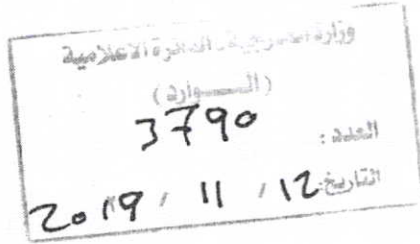 وزارة الخارجية - الدائرة الاعلامية
(الـــوارد)
العدد : 3790
التاريخ: 12 / 11 / 2019